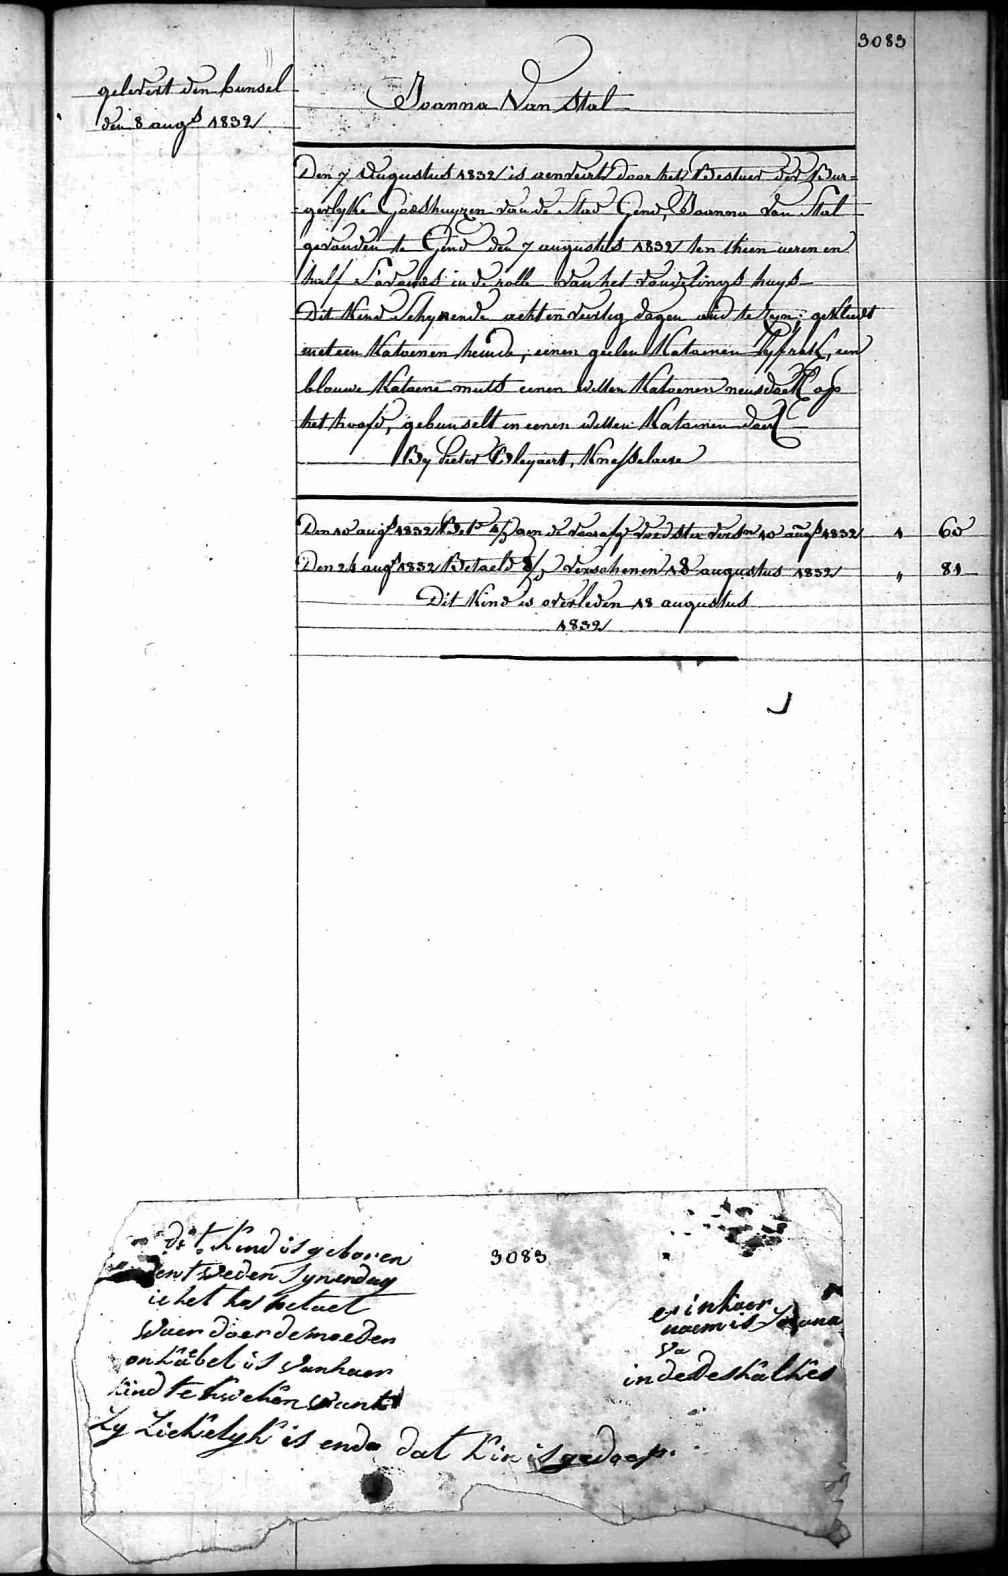 3083
gelevert den bunsel
den 8 augs 1832
Joanna Van Stal
Den 7 Augustus 1832 is aenveirt door het Bestuer der Bur=
gerlyke Godshuyzen van de Stad Gend, Joanna Van Stal
gevonden te Gend den 7 augustus 1832 ten thien ueren en
half s'avonds in de rolle van het vondelings huys
Dit Kind Schynende acht en veirtig dagen oud te zyn; gekleedt
met een Katoenen hemde, eenen geelen Katoenen Lyfrok, een
blauwe Katoene muts eenen witten Katoenen neusdoek op
het hoofd, gebunselt in eenen witten Katoenen doek
By Pieter Bleyaert, Knesselaere
Den 10 augs 1832 Bet. aen de voedster 10 augs 1832 1 60
Den 24 augs 1832 Betaeld verschenen 18 augustus 1832 " 81
Dit Kind is overleden 18 augustus
1832
3083
dit kind is geboren
den tweden synendag
ik het
waer door de moeder
onkabel is van haer
kind te kweken want
Zy Ziekelyk is ende dat kin is gedoop.
en haer
naem is Joana
va
in de Deskalkes